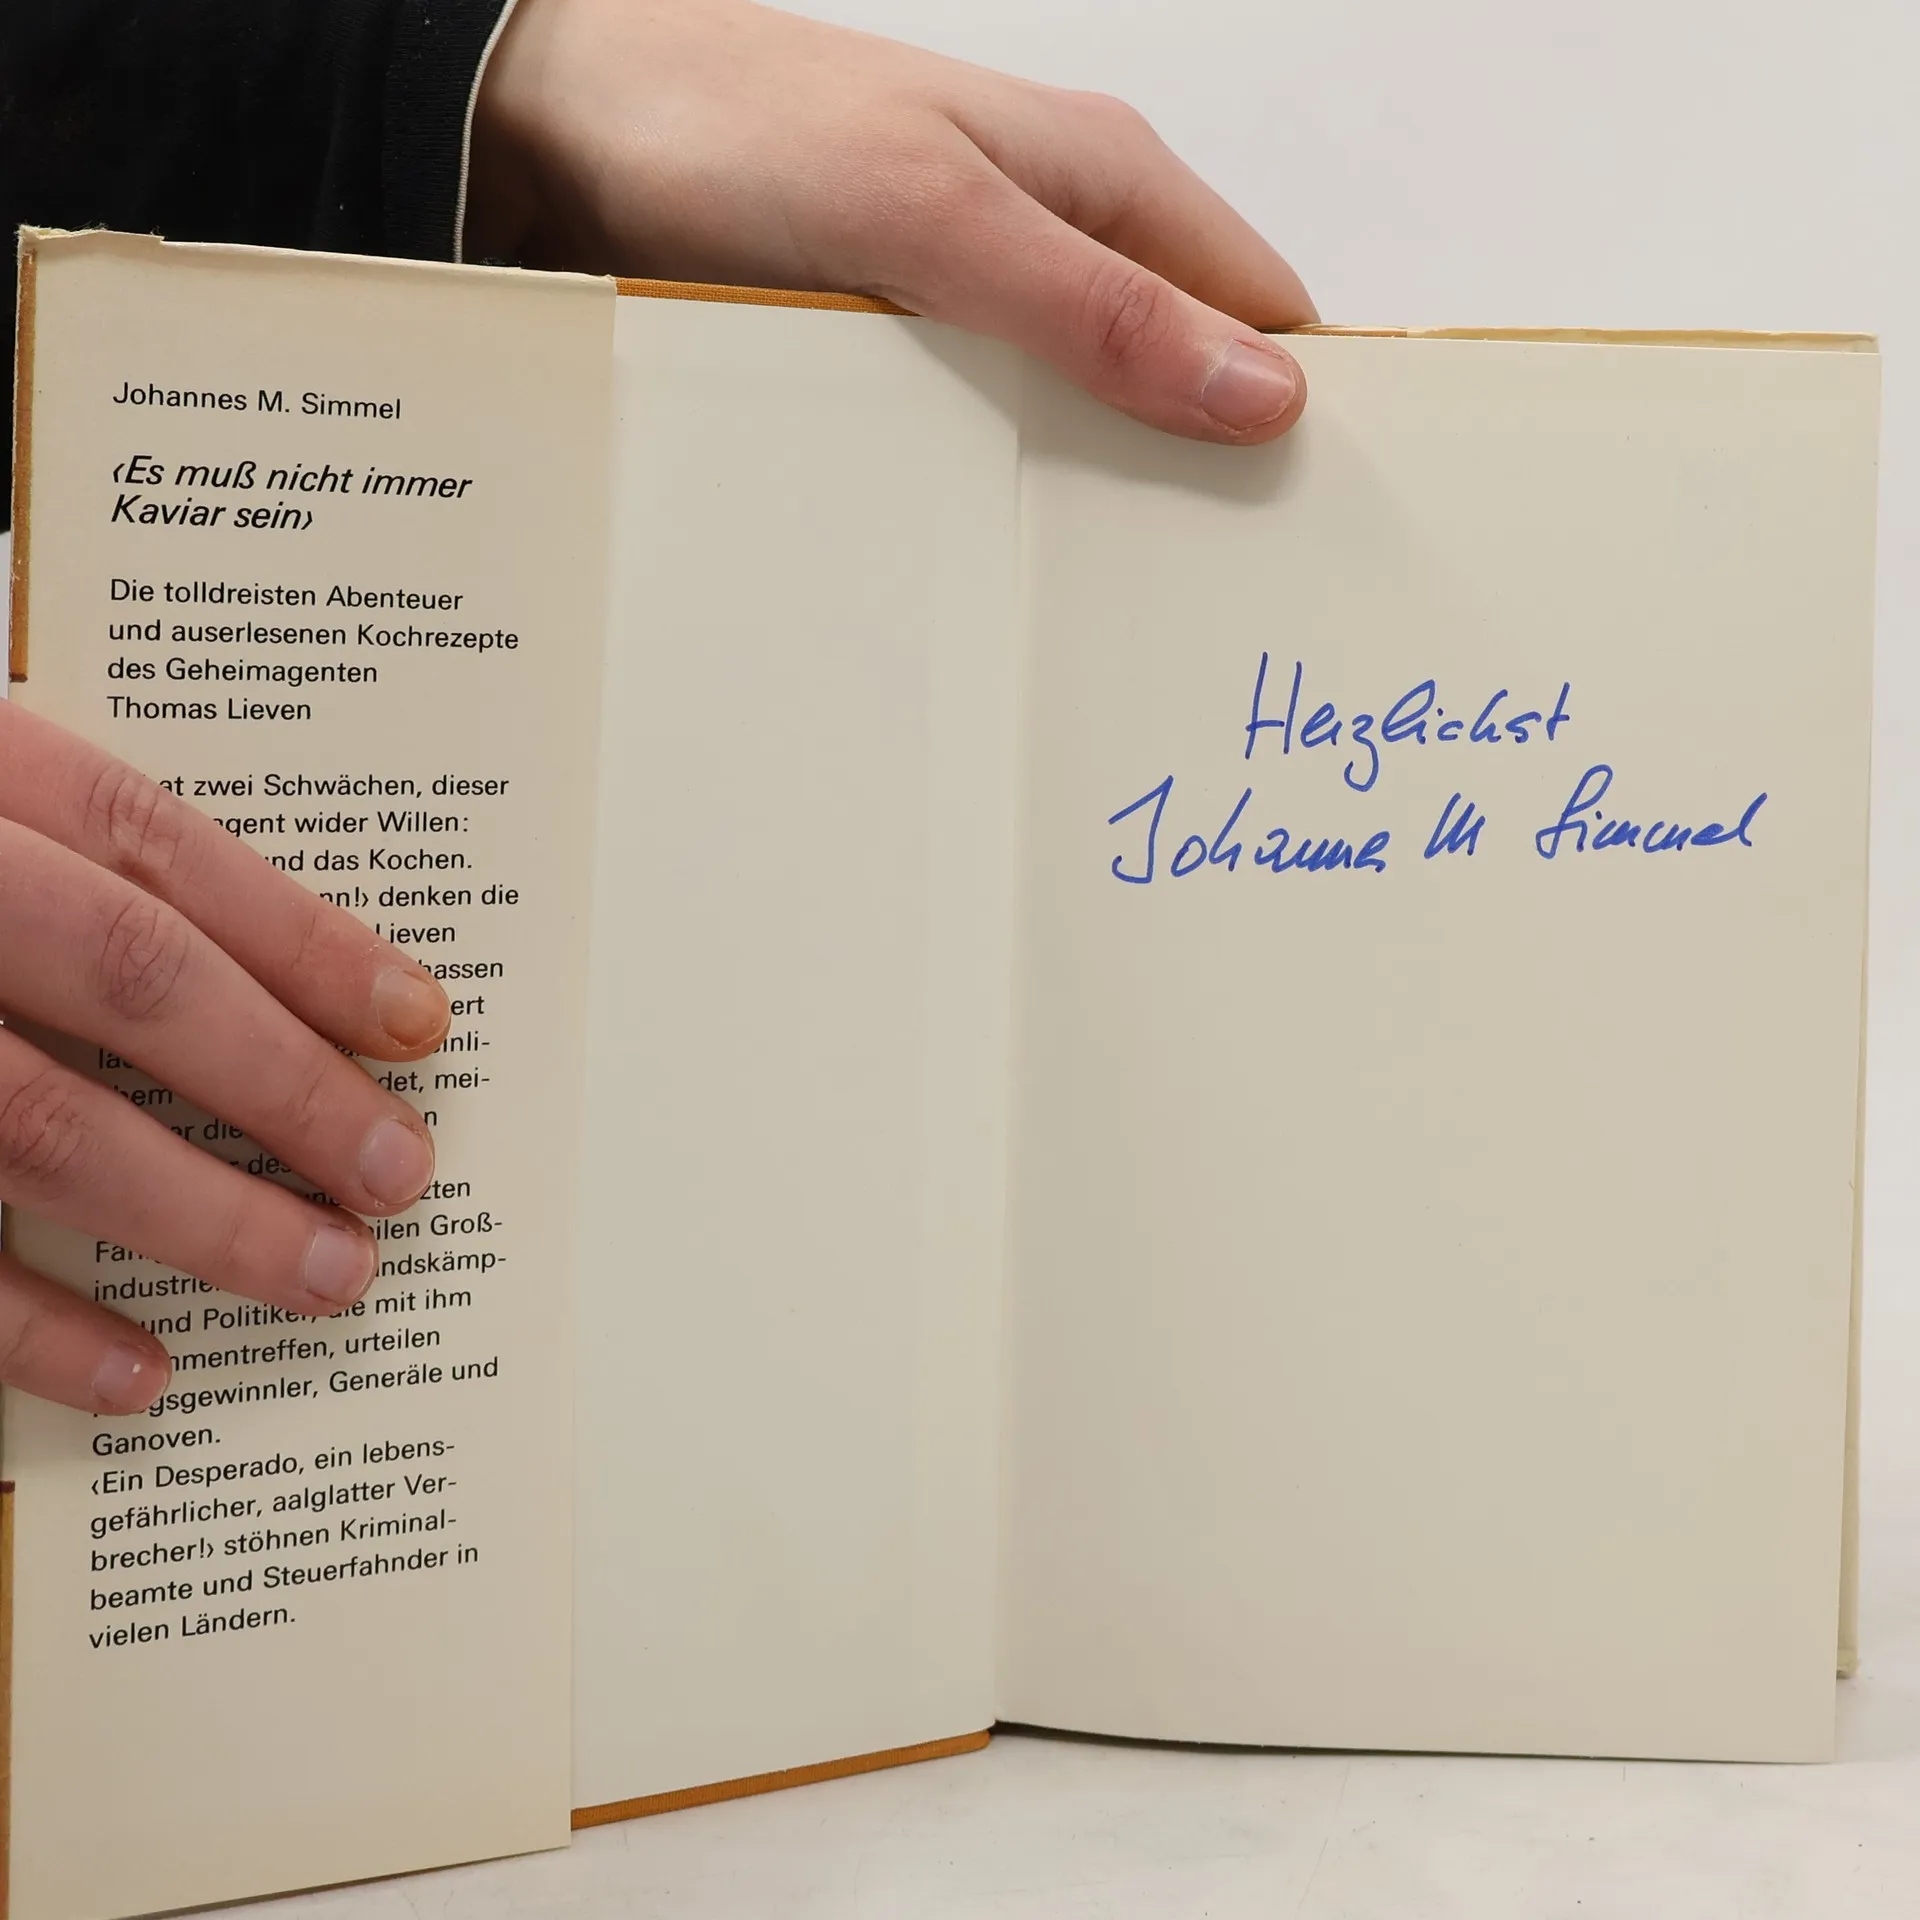 Johannes M. Simmel
‹Es muß nicht immer
Kaviar sein›
Die tolldreisten Abenteuer
und auserlesenen Kochrezepte
des Geheimagenten
Thomas Lieven
zwei Schwächen, dieser
wider Willen:
das Kochen.
denken die
Lieven
mei-
die
Groß-
und Politiker, die mit ihm
urteilen
Generäle und
Ganoven.
‹Ein Desperado, ein lebens-
gefährlicher, aalglatter Ver-
brecher!› stöhnen Kriminal-
beamte und Steuerfahnder in
vielen Ländern.
Herzlichst
Johannes M Simmel